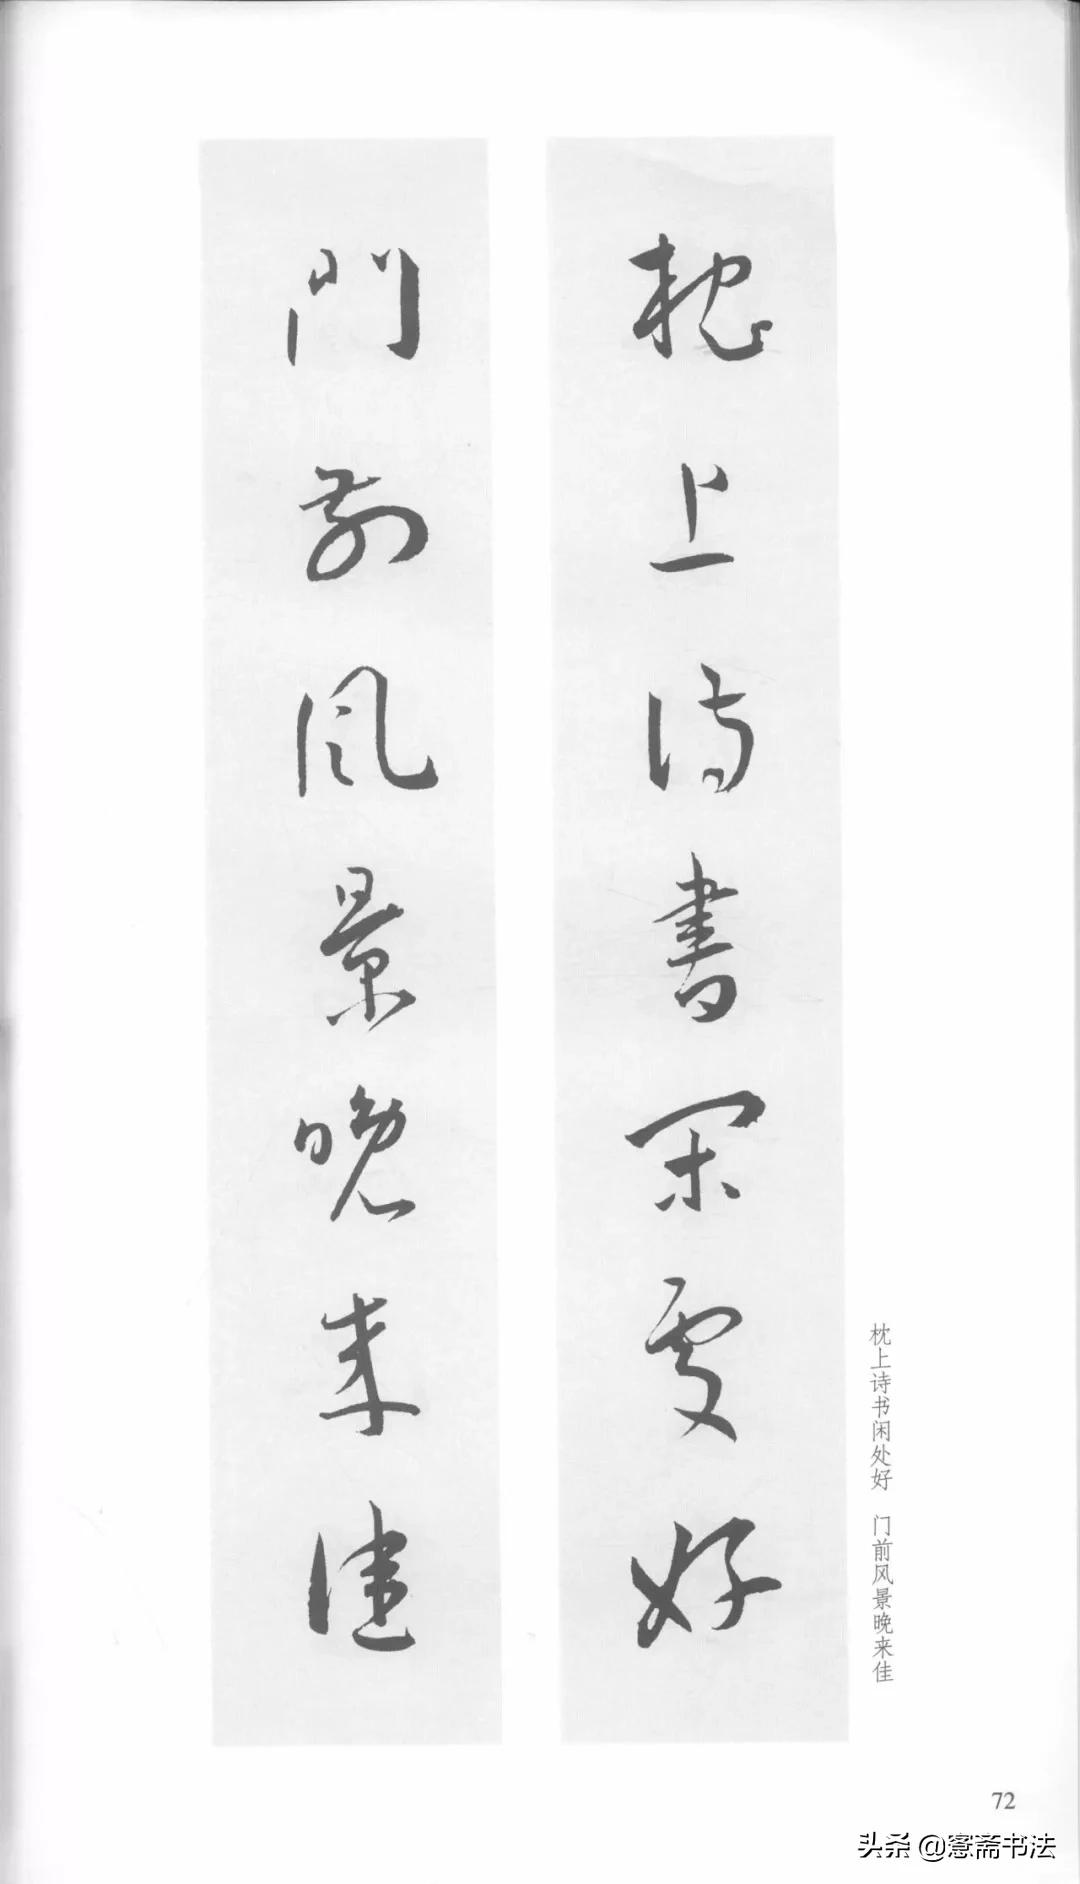 枕上诗書闲處好
門前风景晚来佳
枕上诗书闲处好 门前风景晚来佳
72
头条 @窓斋书法